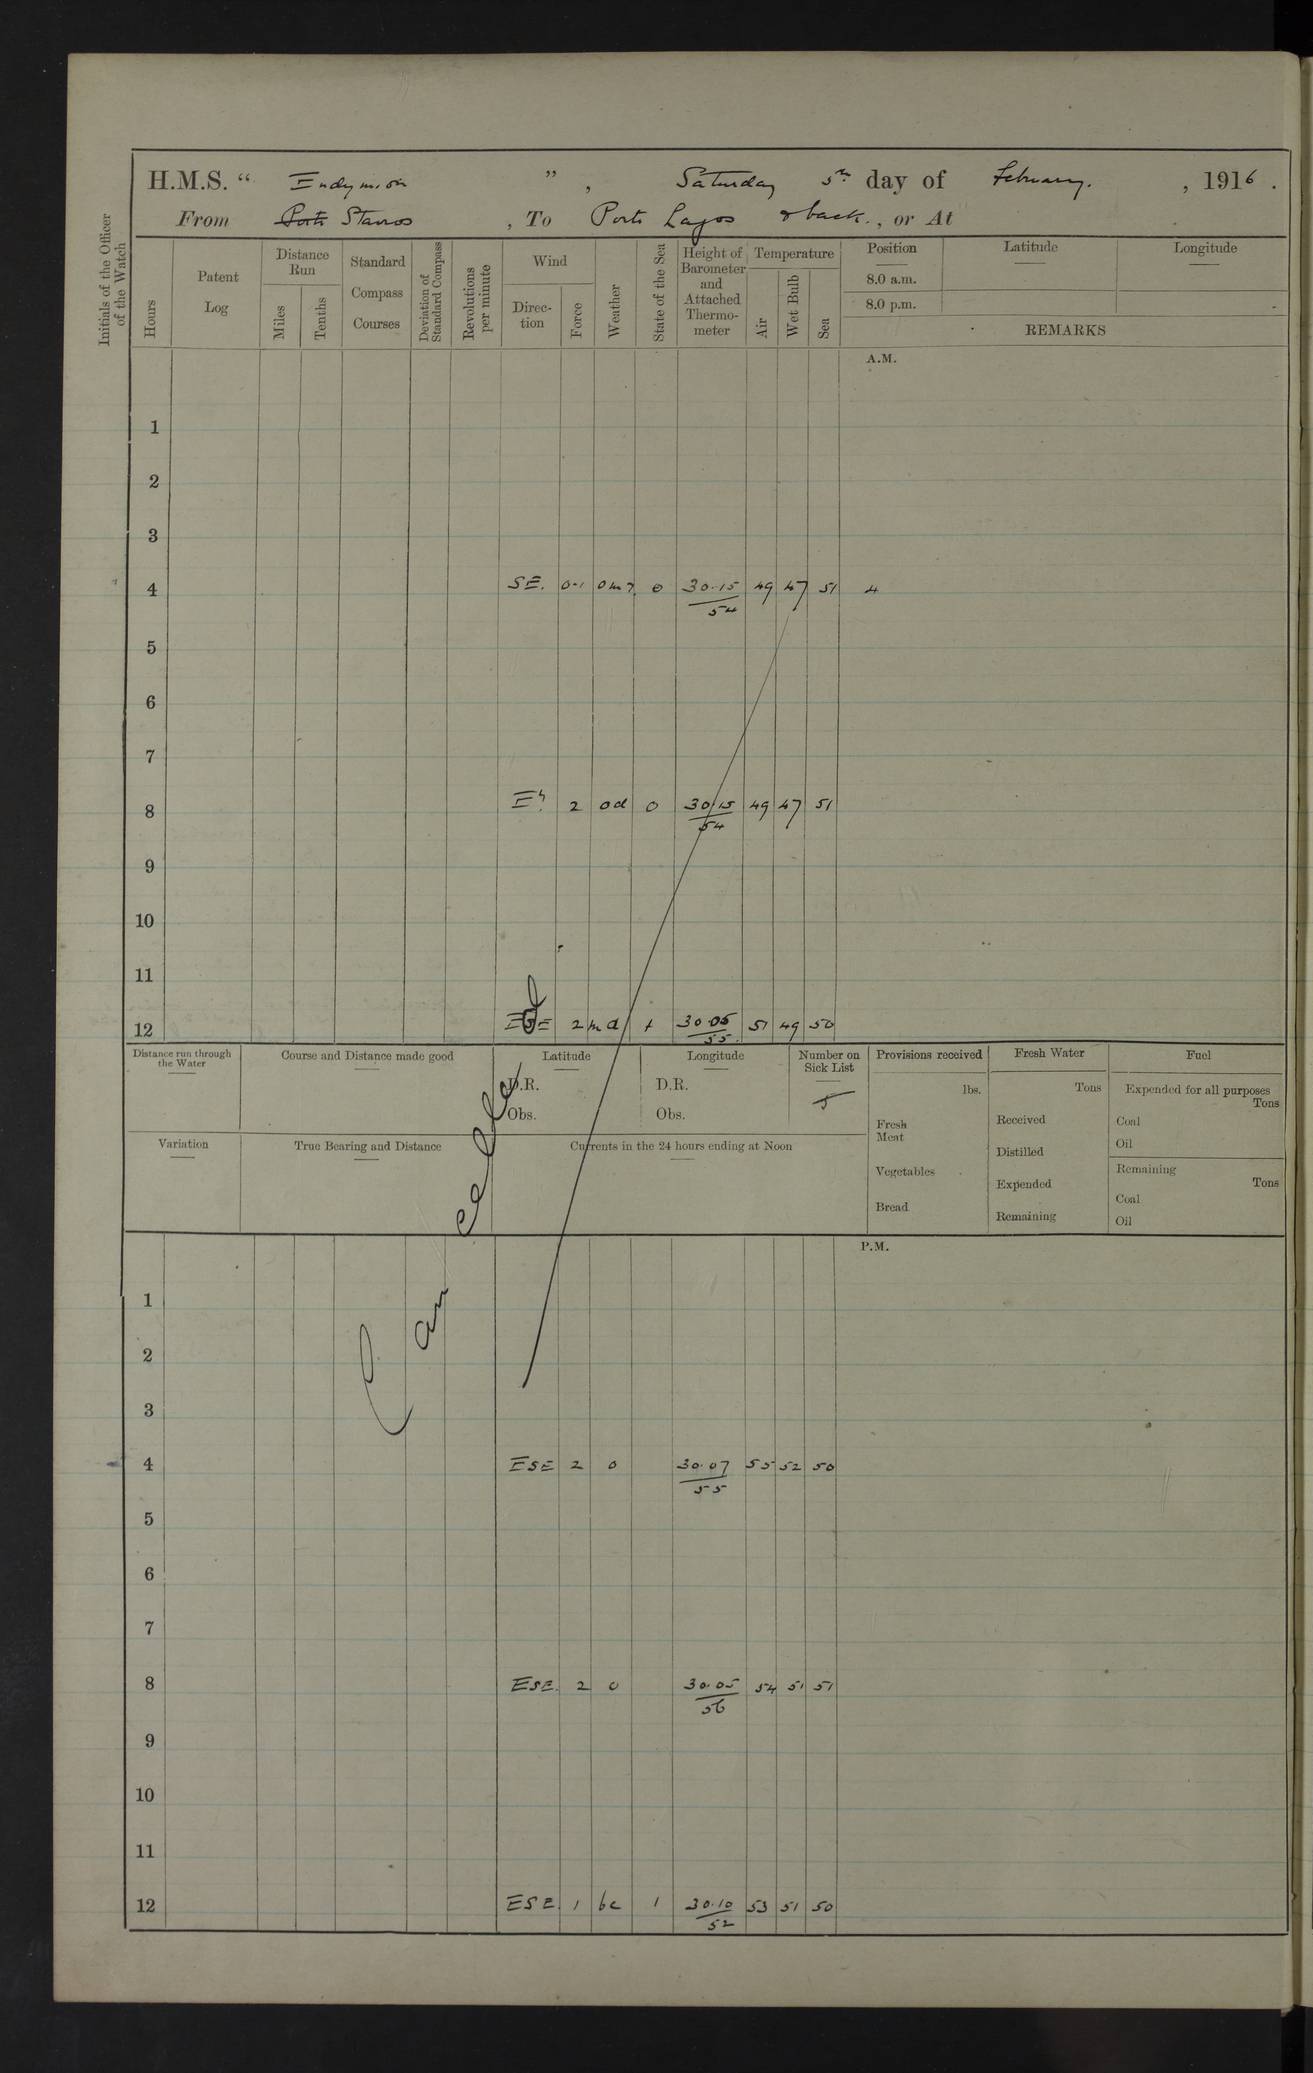 H.M.S. “ Endymion ” , Saturday 5th day of February. , 1916 .
From Port Stavros , To Porto Lagos & back. , or At
Initials of the Officer of the Watch
Hours
Patent Log
Distance Run
Miles
Tenths
Standard Compass Courses
Deviation of Standard Compass
Revolutions per minute
Wind
Direc-tion
Force
Weather
State of the Sea
Height of Barometer and Attached Thermo-meter
Temperature
Air
Wet Bulb
Sea
Position
Latitude
Longitude
8.0 a.m.
8.0 p.m.
REMARKS
A.M.
1
2
3
4 SE. 0-1 0 30.15 49 47 51 4
54
5
6
7
8 2 od 0 30.15 49 47 51
54
9
10
11
12 2 md 1 30.05 51 49 50
55.
Distance run through the Water
Course and Distance made good
Latitude
D.R.
Obs.
Longitude
D.R.
Obs.
Number on Sick List
5
Provisions received
lbs.
Fresh Meat
Vegetables
Bread
Fresh Water
Tons
Received
Distilled
Expended
Remaining
Fuel
Expended for all purposes
Tons
Coal
Oil
Remaining
Tons
Coal
Oil
Variation
True Bearing and Distance
Currents in the 24 hours ending at Noon
Cancelled
P.M.
1
2
3
4 ESE 2 o 30.07 55 52 50
55
5
6
7
8 ESE. 2 o 30.05 54 51 51
56
9
10
11
12 ESE. 1 bc 1 30.10 53 51 50
52